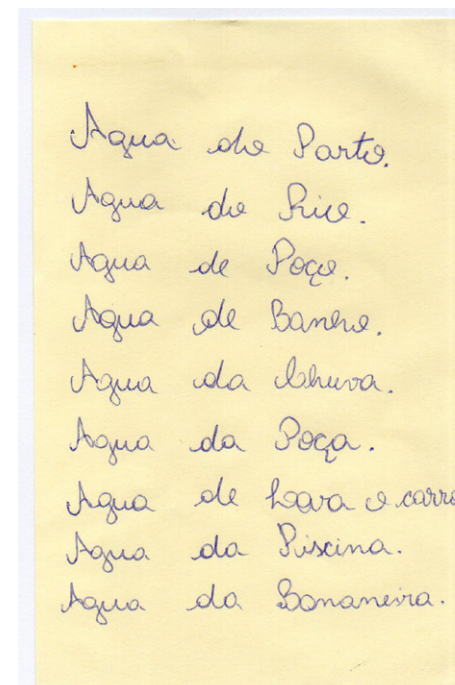 Agua do Parto.
Agua do Rio.
Agua de Poço.
Agua de Banho.
Agua da Chuva.
Agua da Poça.
Agua de Lava o carro
Agua da Piscina.
Agua da Bananeira.